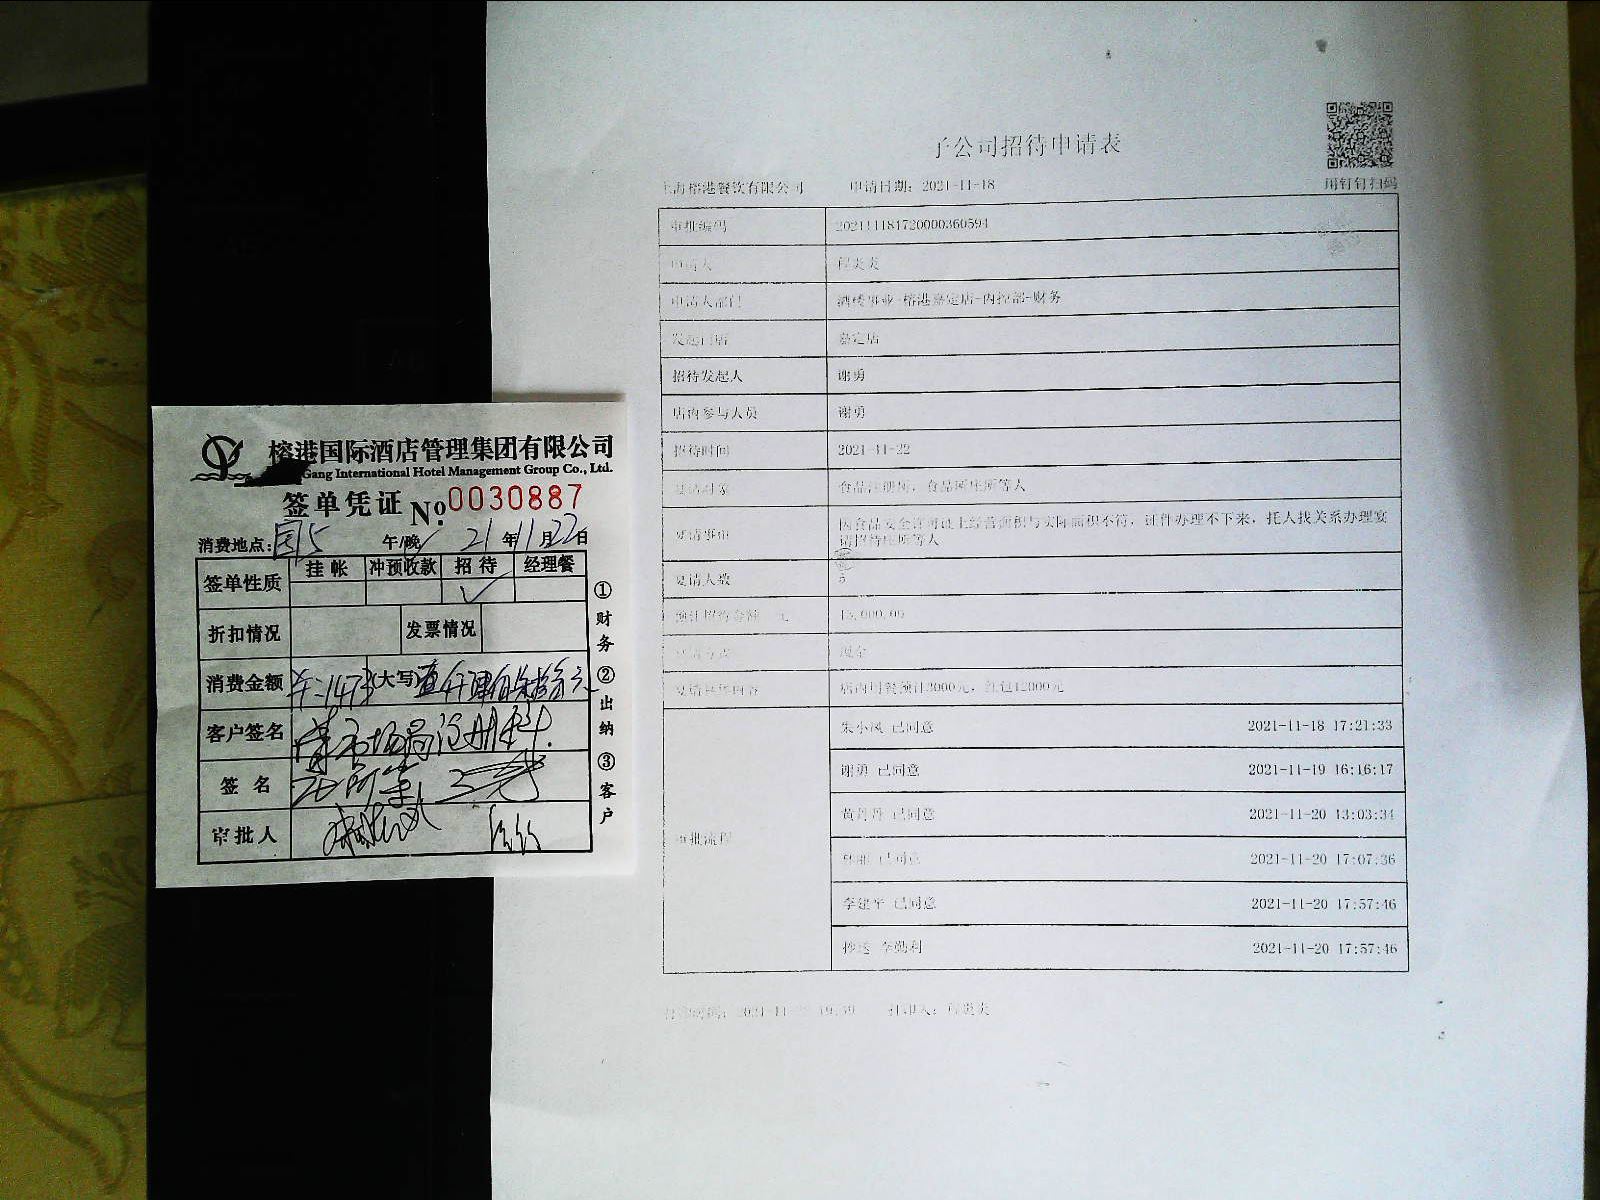 榕港国际酒店管理集团有限公司
Gang International Hotel Management Group Co., Ltd.
签单凭证 No. 0030887
消费地点: 国15 午/晚 21年11月22日
签单性质 挂帐 冲预收款 招待 经理餐
✓
折扣情况 发票情况
消费金额 (大写)
客户签名
签名
审批人
①财务 ②出纳 ③客户
子公司招待申请表
用钉钉扫码
上海榕港餐饮有限公司 申请日期: 2021-11-18
审批编码 202111181720000360594
申请人 程炎炎
申请人部门 酒楼事业-榕港嘉定店-内控部-财务
发起门店 嘉定店
招待发起人 谢勇
店内参与人员 谢勇
招待时间 2021-11-22
宴请对象 食品注册所, 食品所庄所等人
宴请事由 因食品安全许可证上经营面积与实际面积不符, 证件办理不下来, 托人找关系办理宴
请招待庄所等人
宴请人数 5
预计招待金额 元 15,000.00
现金
店内用餐预计3000元, 红包12000元
审批流程
朱小凤 已同意 2021-11-18 17:21:33
谢勇 已同意 2021-11-19 16:16:17
黄丹丹 已同意 2021-11-20 13:03:34
已同意 2021-11-20 17:07:36
李建军 已同意 2021-11-20 17:57:46
抄送 李勤利 2021-11-20 17:57:46
打印人: 程炎炎